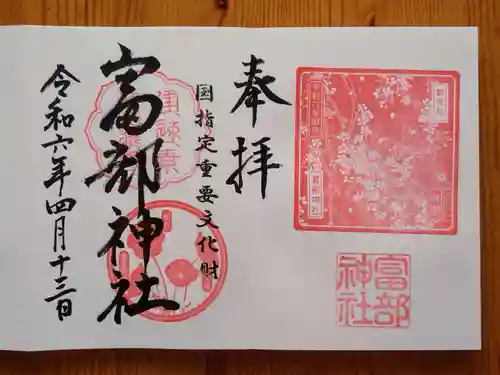 奉拝
国指定重要文化財
富部神社
令和六年四月十三日
富部
神社